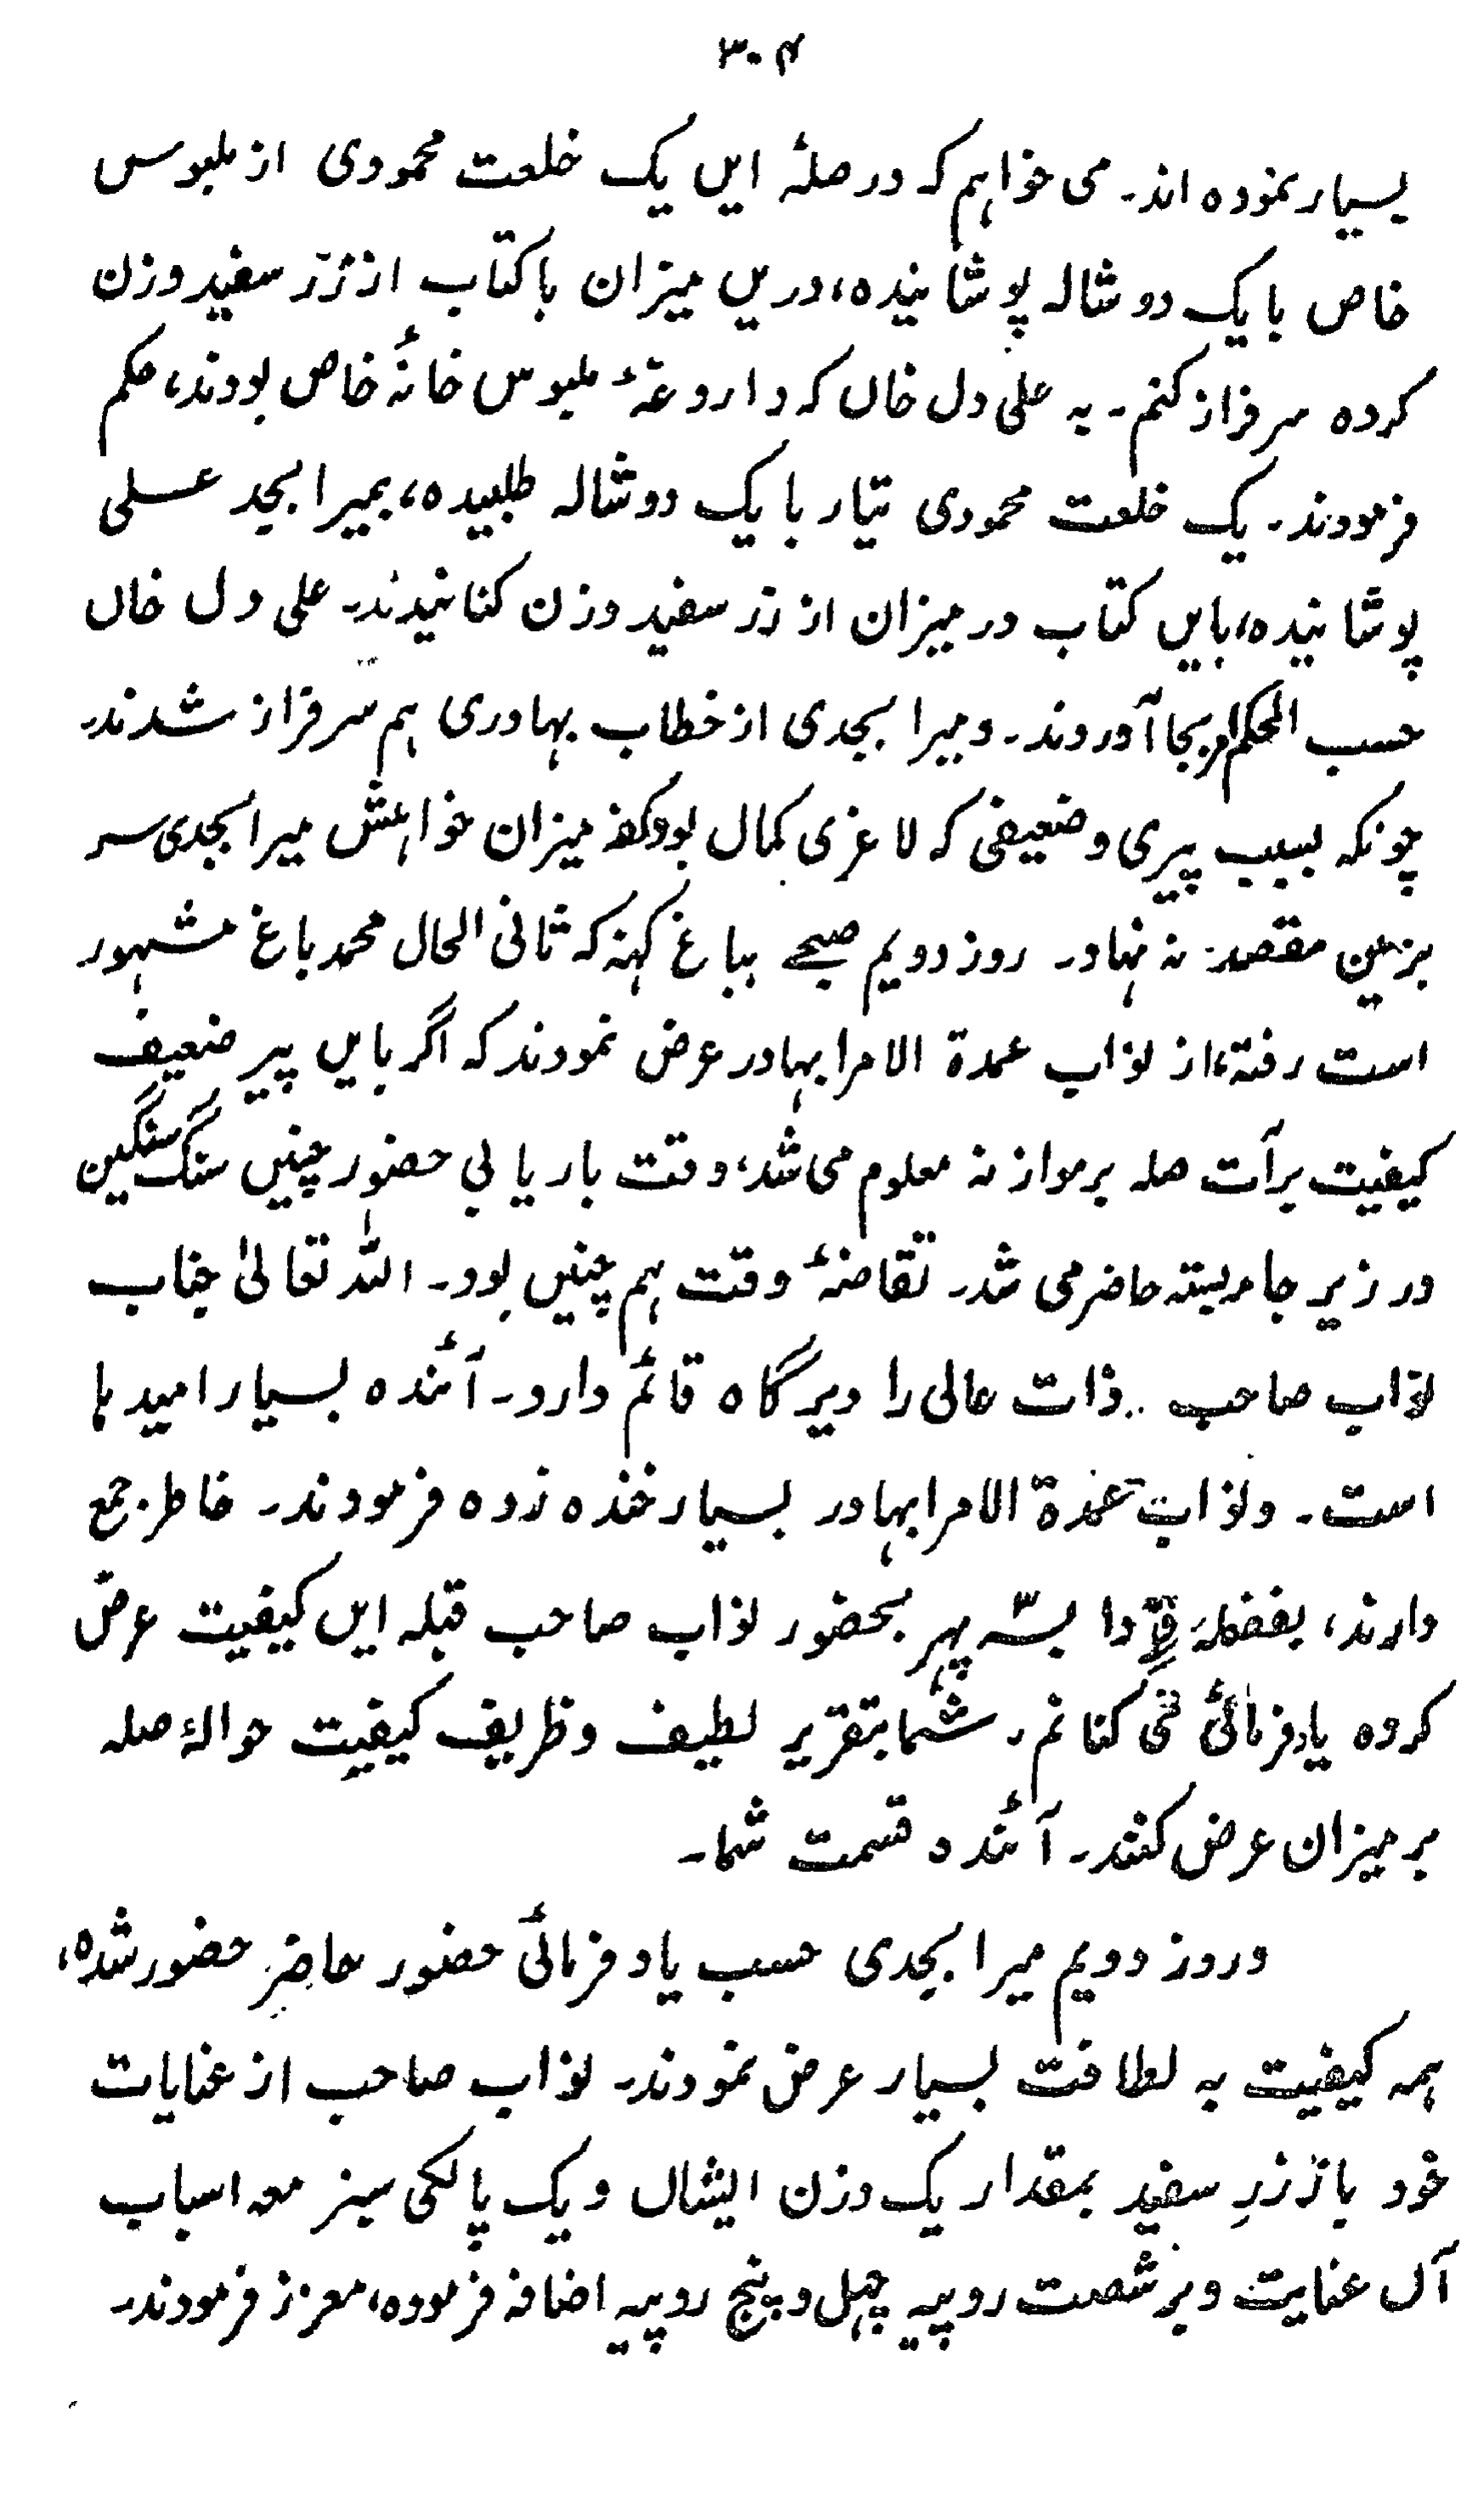 ۳۰۴
بسیار نموده اند۔ می خواہم کہ در صلۂ ایں یک خلعت محمودی از ملبوس
خاص با یک دو شالہ پوشانیدہ، دریں میزان با کتاب از زر سفید وزن
کردہ سرفراز کنم۔ بہ علی دل خاں کہ داروغۂ ملبوس خانۂ خاص بودند، حکم
فرمودند۔ یک خلعت محمودی تیار با یک دو شالہ طلبیدہ، بمیر ابجد علی
پوشانیدہ، بایں کتاب در میزان از زر سفید وزن کنانیدند۔ علی دل خاں
حسب الحکم امر بجا آوردند۔ و میر ابجدی از خطاب بہادری ہم سرفراز شدند۔
چونکہ بسبب پیری و ضعیفی کہ لاغری کمال بود کفۂ میزان خواہش میر ابجدی سر
بزمین مقصد نہ نہاد۔ روز دویم صبحے بباغ کہنہ کہ ثانی الحال محمد باغ مشہور
است رفتہ، از نواب عمدۃ الامرا بہادر عرض نمودند کہ اگر بایں پیر ضعیف
کیفیت برآت صلہ بر موازنہ معلوم می شد، وقت باریابی حضور چنیں سنگ سنگین
در زیر جامہ بستہ حاضر می شد۔ تقاضۂ وقت ہم چنیں بود۔ اللہ تعالیٰ جناب
نواب صاحب .. ذات عالی را دیر گاہ قائم دارد۔ آئندہ بسیار امید ہا
است۔ و نواب عمدۃ الامرا بہادر بسیار خندہ زدہ فرمودند۔ خاطر جمع
دارند، بفضلہٖ فردا بسہ پہر بحضور نواب صاحب قبلہ ایں کیفیت عرض
کردہ یاد فرمائی می کنانم۔ شما بتقریر لطیف و ظریف کیفیت حوالۂ صلہ
بر میزان عرض کنند۔ آئندہ قسمت شما۔
و روز دویم میر ابجدی حسب یاد فرمائی حضور حاضر حضور شدہ،
ہمہ کیفیت بہ لطافت بسیار عرض نمودند۔ نواب صاحب از عنایات
خود باز زرِ سفید بمقدار یک وزن ایشاں و یک پالکی سبز معہ اسباب
آں عنایت و بر شصت روپیہ چہل و پنج روپیہ اضافہ فرمودہ، معزز فرمودند۔